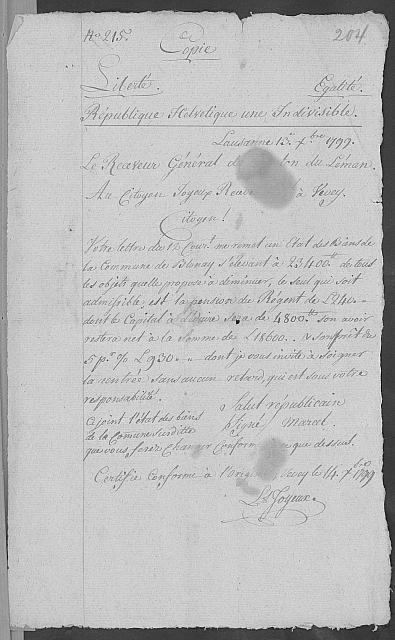 No. 215. 204
Copie
Liberté. Egalité.
République Helvetique une Indivisible.
Lausanne 13. 7bre 1799.
Le Receveur Général d du Léman.
Au Citoyen Joyeux Rece à Vevey.
Citoyen!
Votre lettre du 12 Cour.t me remet un Etat des Biens de
la Commune de Blonay s'elevant à 23400.tt de tous
les objets quelle propose à diminuer, le seul que soit
admissible, est la pension du Régent de £ 240.-
dont le Capital sera de 4800.tt son avoir
restera net à la Somme de £ 18600..
5 p.r % £ 930.- dont je vous invite à soigner
la rentrée sans aucun retard, qui est sous votre
responsabilité.
Salut républicain
cyjoint l'état des biens Signé Marcel.
de la Comune surditte
que vous ferez Changer Conforme que dessus.
Certifié Conforme à l'Orig Vevey le 14. 7bre 1799
Ls Joyeux.